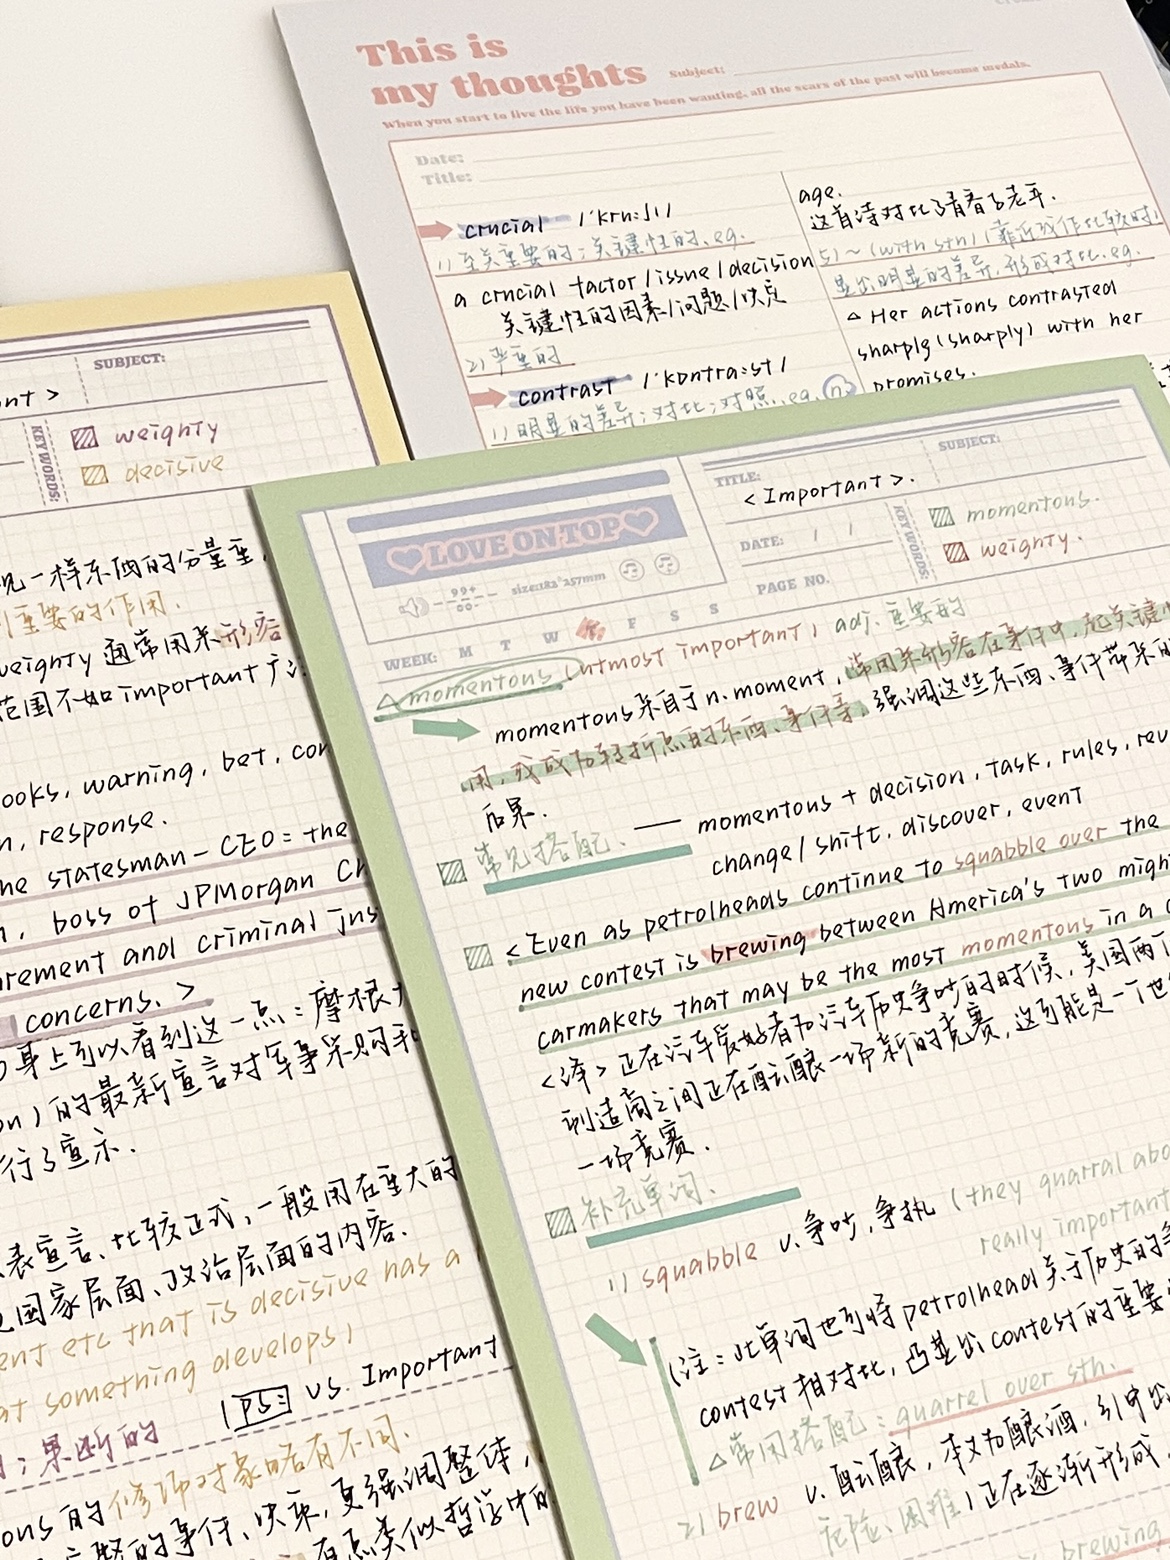 This is
my thoughts
Subject:
When you start to live the life you have been wanting, all the scars of the past will become medals.
Date:
Title:
crucial /ˈkruːʃl/
1) 至关重要的；关键性的. eg.
a crucial factor / issue / decision
关键性的因素/问题/决定
2) 严重的
contrast /ˈkɒntrɑːst/
1) 明显的差异；对比；对照. eg. n.
age.
这首诗对比了青春与老年.
5) ~ (with sth) (靠近或作比较时)
显出明显的差异, 形成对比. eg.
△ Her actions contrasted
sharply (sharply) with her
promises.
ant >
SUBJECT:
KEYWORDS:
weighty
decisive
一样东西的分量重,
重要的作用.
weighty 通常用来形容
范围不如 important 广
ooks, warning, bet, con
n, response.
he statesman-CEO: the
, boss of JPMorgan Ch
urement and criminal jus
concerns. >
身上可以看到这一点：摩根大
on) 的最新宣言对军事采购和
行了宣示.
表宣言、比较正式, 一般用在重大的
国家层面、政治层面的内容.
ent etc that is decisive has a
at something develops)
; 果断的
PS: vs. Important
ous 的修饰对象略有不同.
的事件、决策, 更强调整体,
有点类似哲学中的
LOVE ON TOP
size:182*257mm
WEEK: M T W T F S S
TITLE:
< Important >.
SUBJECT:
DATE: / /
PAGE NO.
KEYWORDS:
momentous.
weighty.
△ momentous (utmost important) adj. 重要的
momentous 来自于 n. moment, 常用来形容在事件中, 起关键
用, 或成为转折点的东西、事件等, 强调这些东西、事件带来的
后果.
常见搭配. — momentous + decision, task, rules, rev
change / shift, discover, event
< Even as petrolheads continue to squabble over the
new contest is brewing between America's two might
carmakers that may be the most momentous in a c
<译> 正在汽车爱好者和汽车历史争吵的时候, 美国两
制造商之间正在酝酿一场新的竞赛, 这可能是一个世
一场竞赛.
补充单词.
1) squabble v. 争吵, 争执 (they quarral abo
really important
(注：此单词也可将 petrolhead 关于历史的
contest 相对比, 凸显出 contest 的重要
△ 常用搭配：quarrel over sth.
2) brew v. 酝酿, 本义为酿酒, 引申出
危险、困难) 正在逐渐形成
brewing